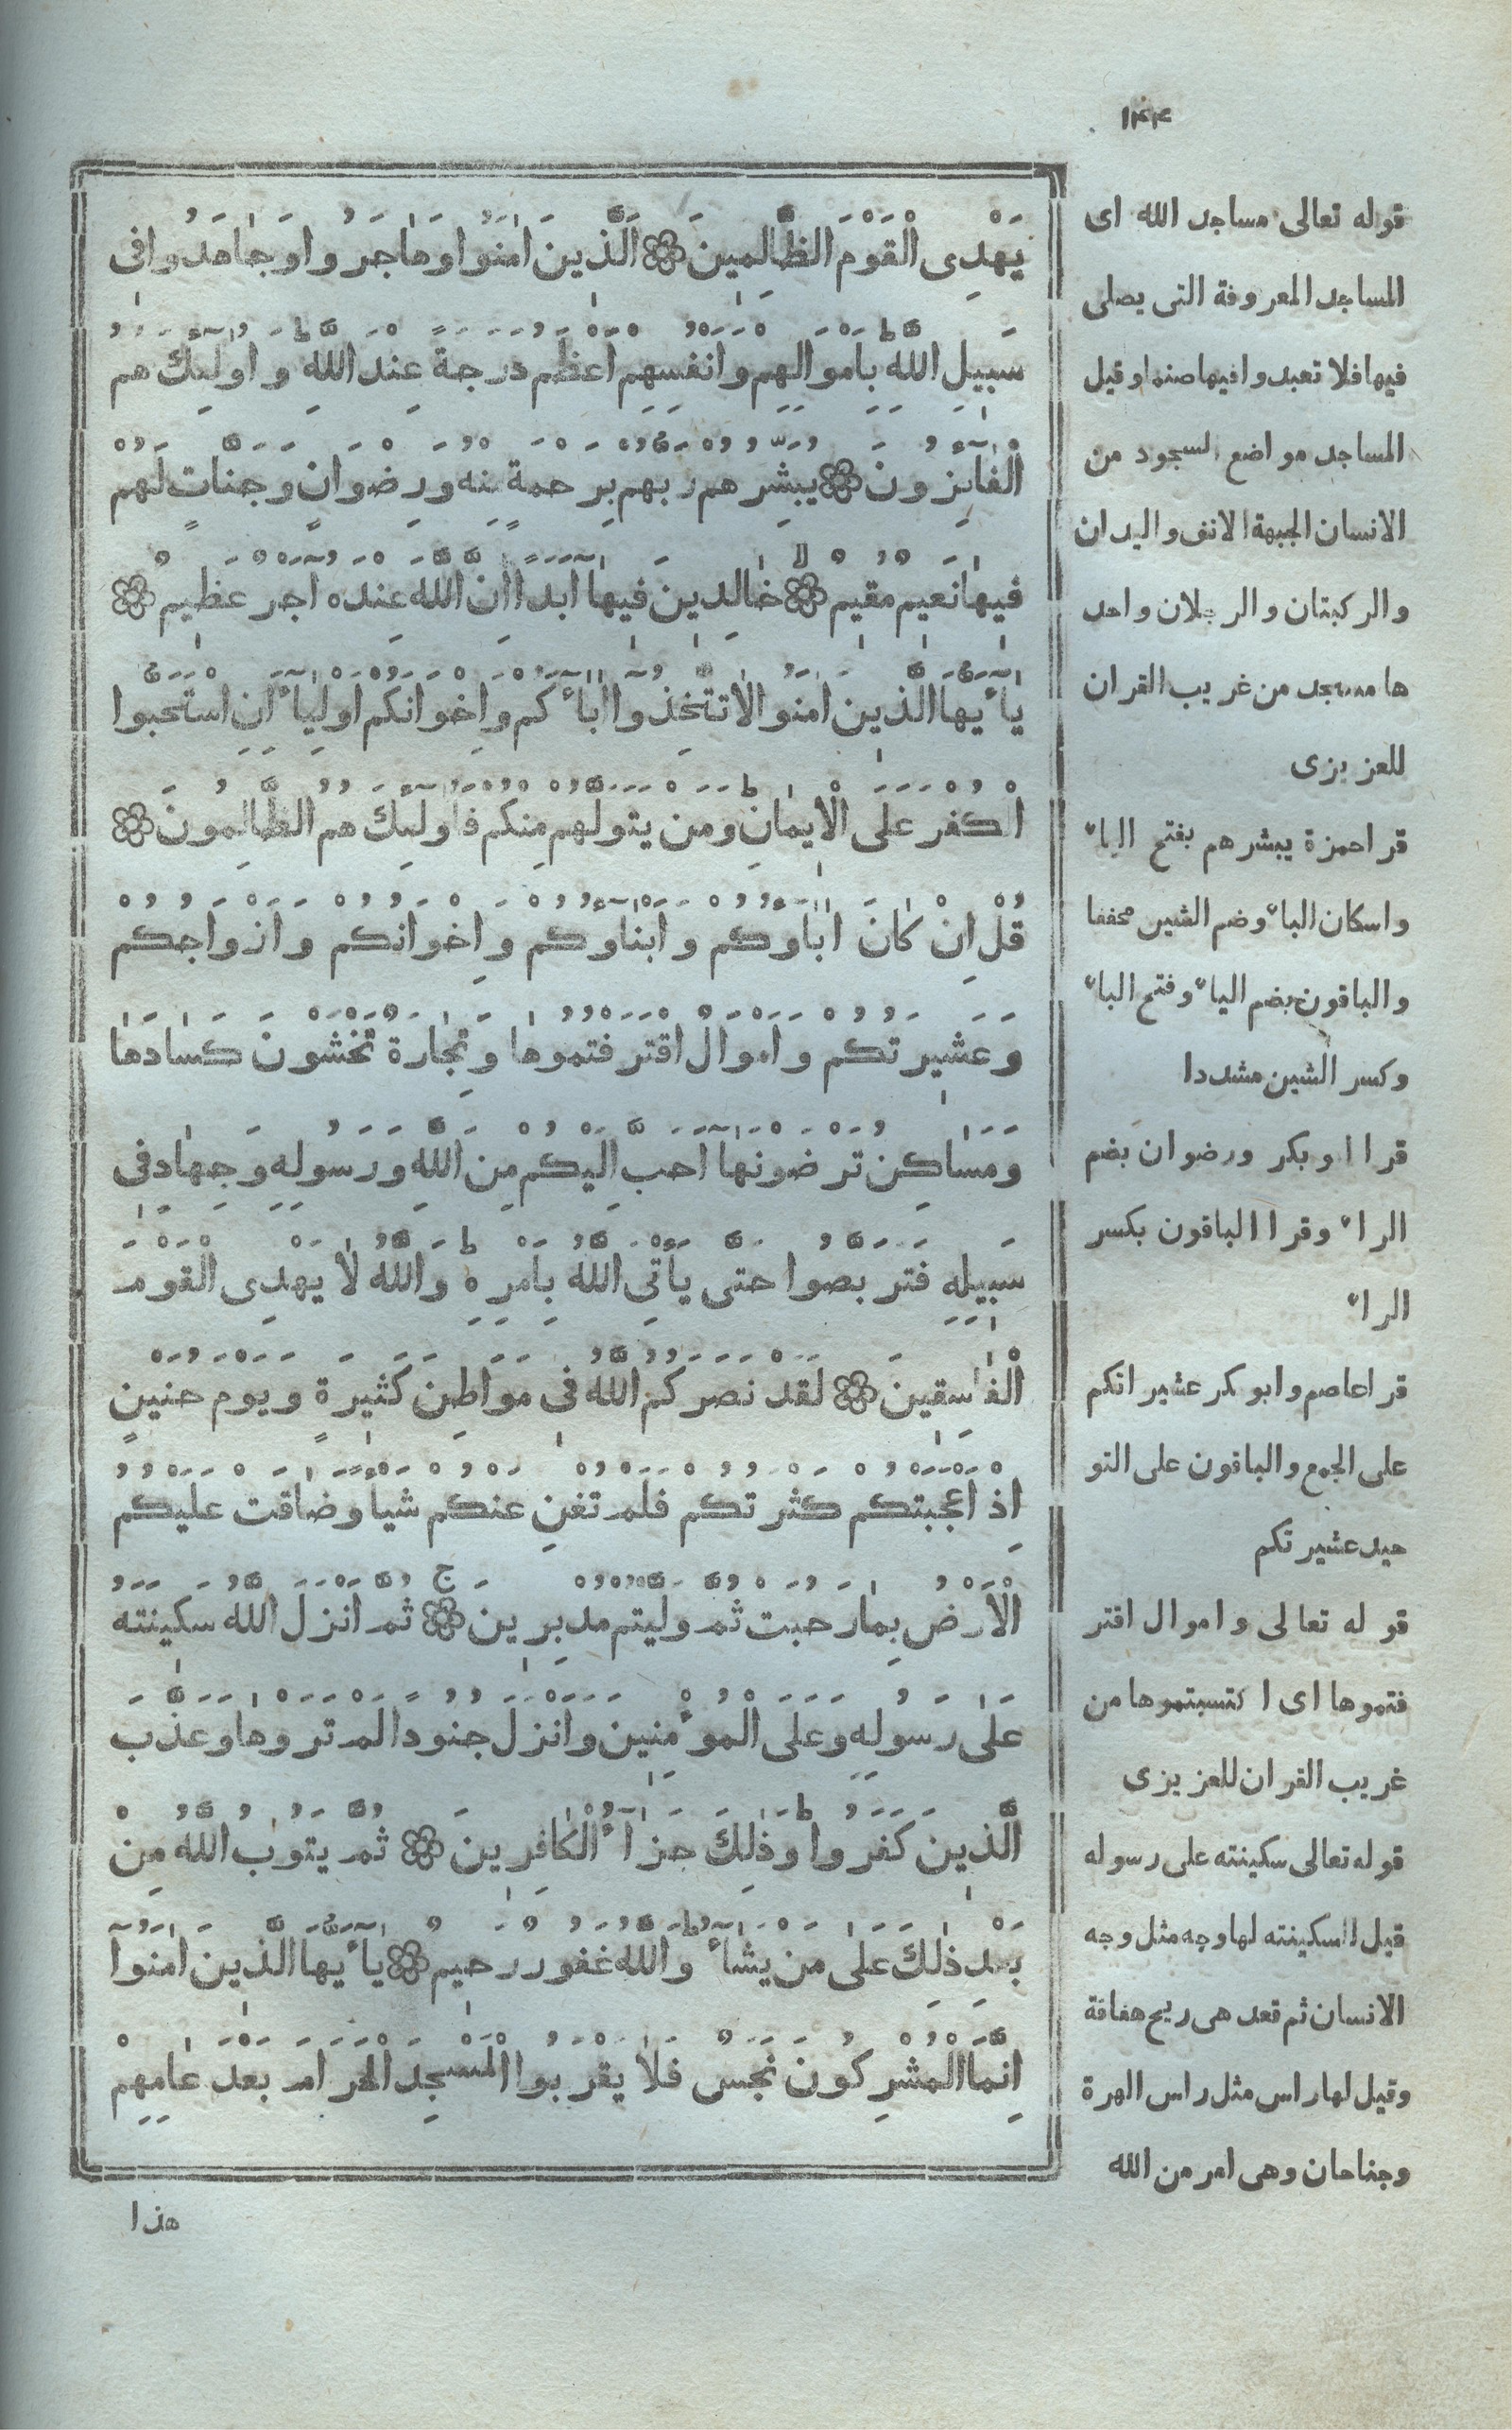 ١٤٤
يَهْدِى الْقَوْمَ الظَّالِمِينَ ۞ اَلَّذِينَ اٰمَنُوا وَهَاجَرُوا وَجَاهَدُوا فِى
سَبِيلِ اللّٰهِ ط بِاَمْوَالِهِمْ وَاَنْفُسِهِمْ اَعْظَمُ دَرَجَةً عِنْدَ اللّٰهِ ط وَاُولٰٓئِكَ هُمُ
الْفَآئِزُونَ ۞ يُبَشِّرُهُمْ رَبُّهُمْ بِرَحْمَةٍ مِنْهُ وَرِضْوَانٍ وَجَنَّاتٍ لَهُمْ
فِيهَا نَعِيمٌ مُقِيمٌ لا ۞ خَالِدِينَ فِيهَآ اَبَدًا اِنَّ اللّٰهَ عِنْدَهُٓ اَجْرٌ عَظِيمٌ ۞
يَآ اَيُّهَا الَّذِينَ اٰمَنُوا لَا تَتَّخِذُوٓا اٰبَآءَكُمْ وَاِخْوَانَكُمْ اَوْلِيَآءَ اِنِ اسْتَحَبُّوا
الْكُفْرَ عَلَى الْاِيمَانِ ط وَمَنْ يَتَوَلَّهُمْ مِنْكُمْ فَاُولٰٓئِكَ هُمُ الظَّالِمُونَ ۞
قُلْ اِنْ كَانَ اٰبَآؤُكُمْ وَاَبْنَآؤُكُمْ وَاِخْوَانُكُمْ وَاَزْوَاجُكُمْ
وَعَشِيرَتُكُمْ وَاَمْوَالٌ اقْتَرَفْتُمُوهَا وَتِجَارَةٌ تَخْشَوْنَ كَسَادَهَا
وَمَسَاكِنُ تَرْضَوْنَهَآ اَحَبَّ اِلَيْكُمْ مِنَ اللّٰهِ وَرَسُولِهِ وَجِهَادٍ فِى
سَبِيلِهِ فَتَرَبَّصُوا حَتَّى يَأْتِىَ اللّٰهُ بِاَمْرِهِ ط وَاللّٰهُ لَا يَهْدِى الْقَوْمَ
الْفَاسِقِينَ ۞ لَقَدْ نَصَرَكُمُ اللّٰهُ فِى مَوَاطِنَ كَثِيرَةٍ وَيَوْمَ حُنَيْنٍ
اِذْ اَعْجَبَتْكُمْ كَثْرَتُكُمْ فَلَمْ تُغْنِ عَنْكُمْ شَيْأً وَضَاقَتْ عَلَيْكُمُ
الْاَرْضُ بِمَا رَحُبَتْ ثُمَّ وَلَّيْتُمْ مُدْبِرِينَ ج ۞ ثُمَّ اَنْزَلَ اللّٰهُ سَكِينَتَهُ
عَلَى رَسُولِهِ وَعَلَى الْمُؤْمِنِينَ وَاَنْزَلَ جُنُودًا لَمْ تَرَوْهَا وَعَذَّبَ
الَّذِينَ كَفَرُوا ط وَذٰلِكَ جَزَآءُ الْكَافِرِينَ ۞ ثُمَّ يَتُوبُ اللّٰهُ مِنْ
بَعْدِ ذٰلِكَ عَلَى مَنْ يَشَآءُ ط وَاللّٰهُ غَفُورٌ رَحِيمٌ ۞ يَآ اَيُّهَا الَّذِينَ اٰمَنُوٓا
اِنَّمَا الْمُشْرِكُونَ نَجَسٌ فَلَا يَقْرَبُوا الْمَسْجِدَ الْحَرَامَ بَعْدَ عَامِهِمْ
هذا
قوله تعالى مساجد الله اى
المساجد المعروفة التى يصلى
فيها فلا تعبدوا فيها صنما وقيل
المساجد مواضع السجود من
الانسان الجبهة الانف واليدان
والركبتان والرجلان واحد
ها مسجد من غريب القران
للعزيزى
قرا حمزة يبشرهم بفتح الياء
واسكان الباء وضم الشين مخففا
والباقون بضم الياء وفتح الباء
وكسر الشين مشددا
قرا ابوبكر ورضوان بضم
الراء وقرا الباقون بكسر
الراء
قرا عاصم وابوبكر عشيراتكم
على الجمع والباقون على التو
حيد عشيرتكم
قوله تعالى واموال اقتر
فتموها اى اكتسبتموها من
غريب القران للعزيزى
قوله تعالى سكينته على رسوله
قيل السكينته لها وجه مثل وجه
الانسان ثم قعد هى ريح هفافة
وقيل لها راس مثل راس الهرة
وجناحان وهى امر من الله